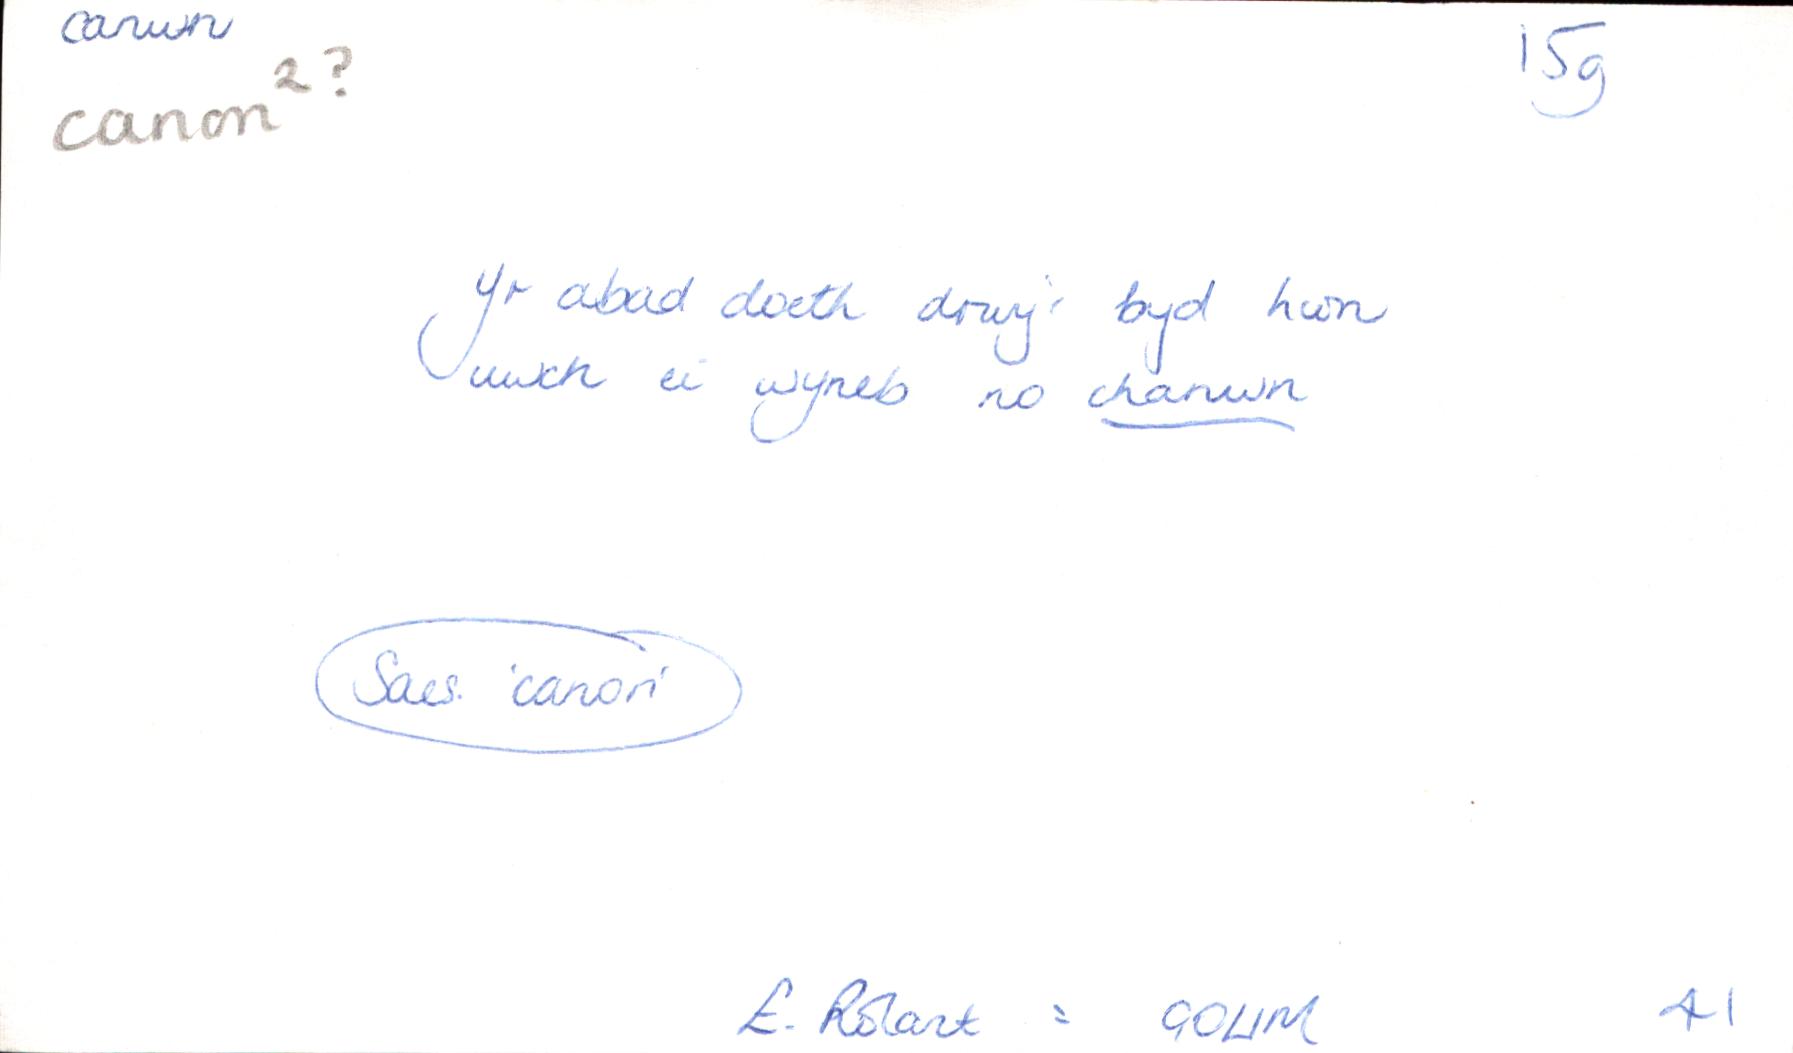 canwn
15g
canon²?
Yr abad doeth drwy'r byd hwn
uwch ei wyneb no chanwn
Saes. 'canon'
E. Rolant = GOLlM 41